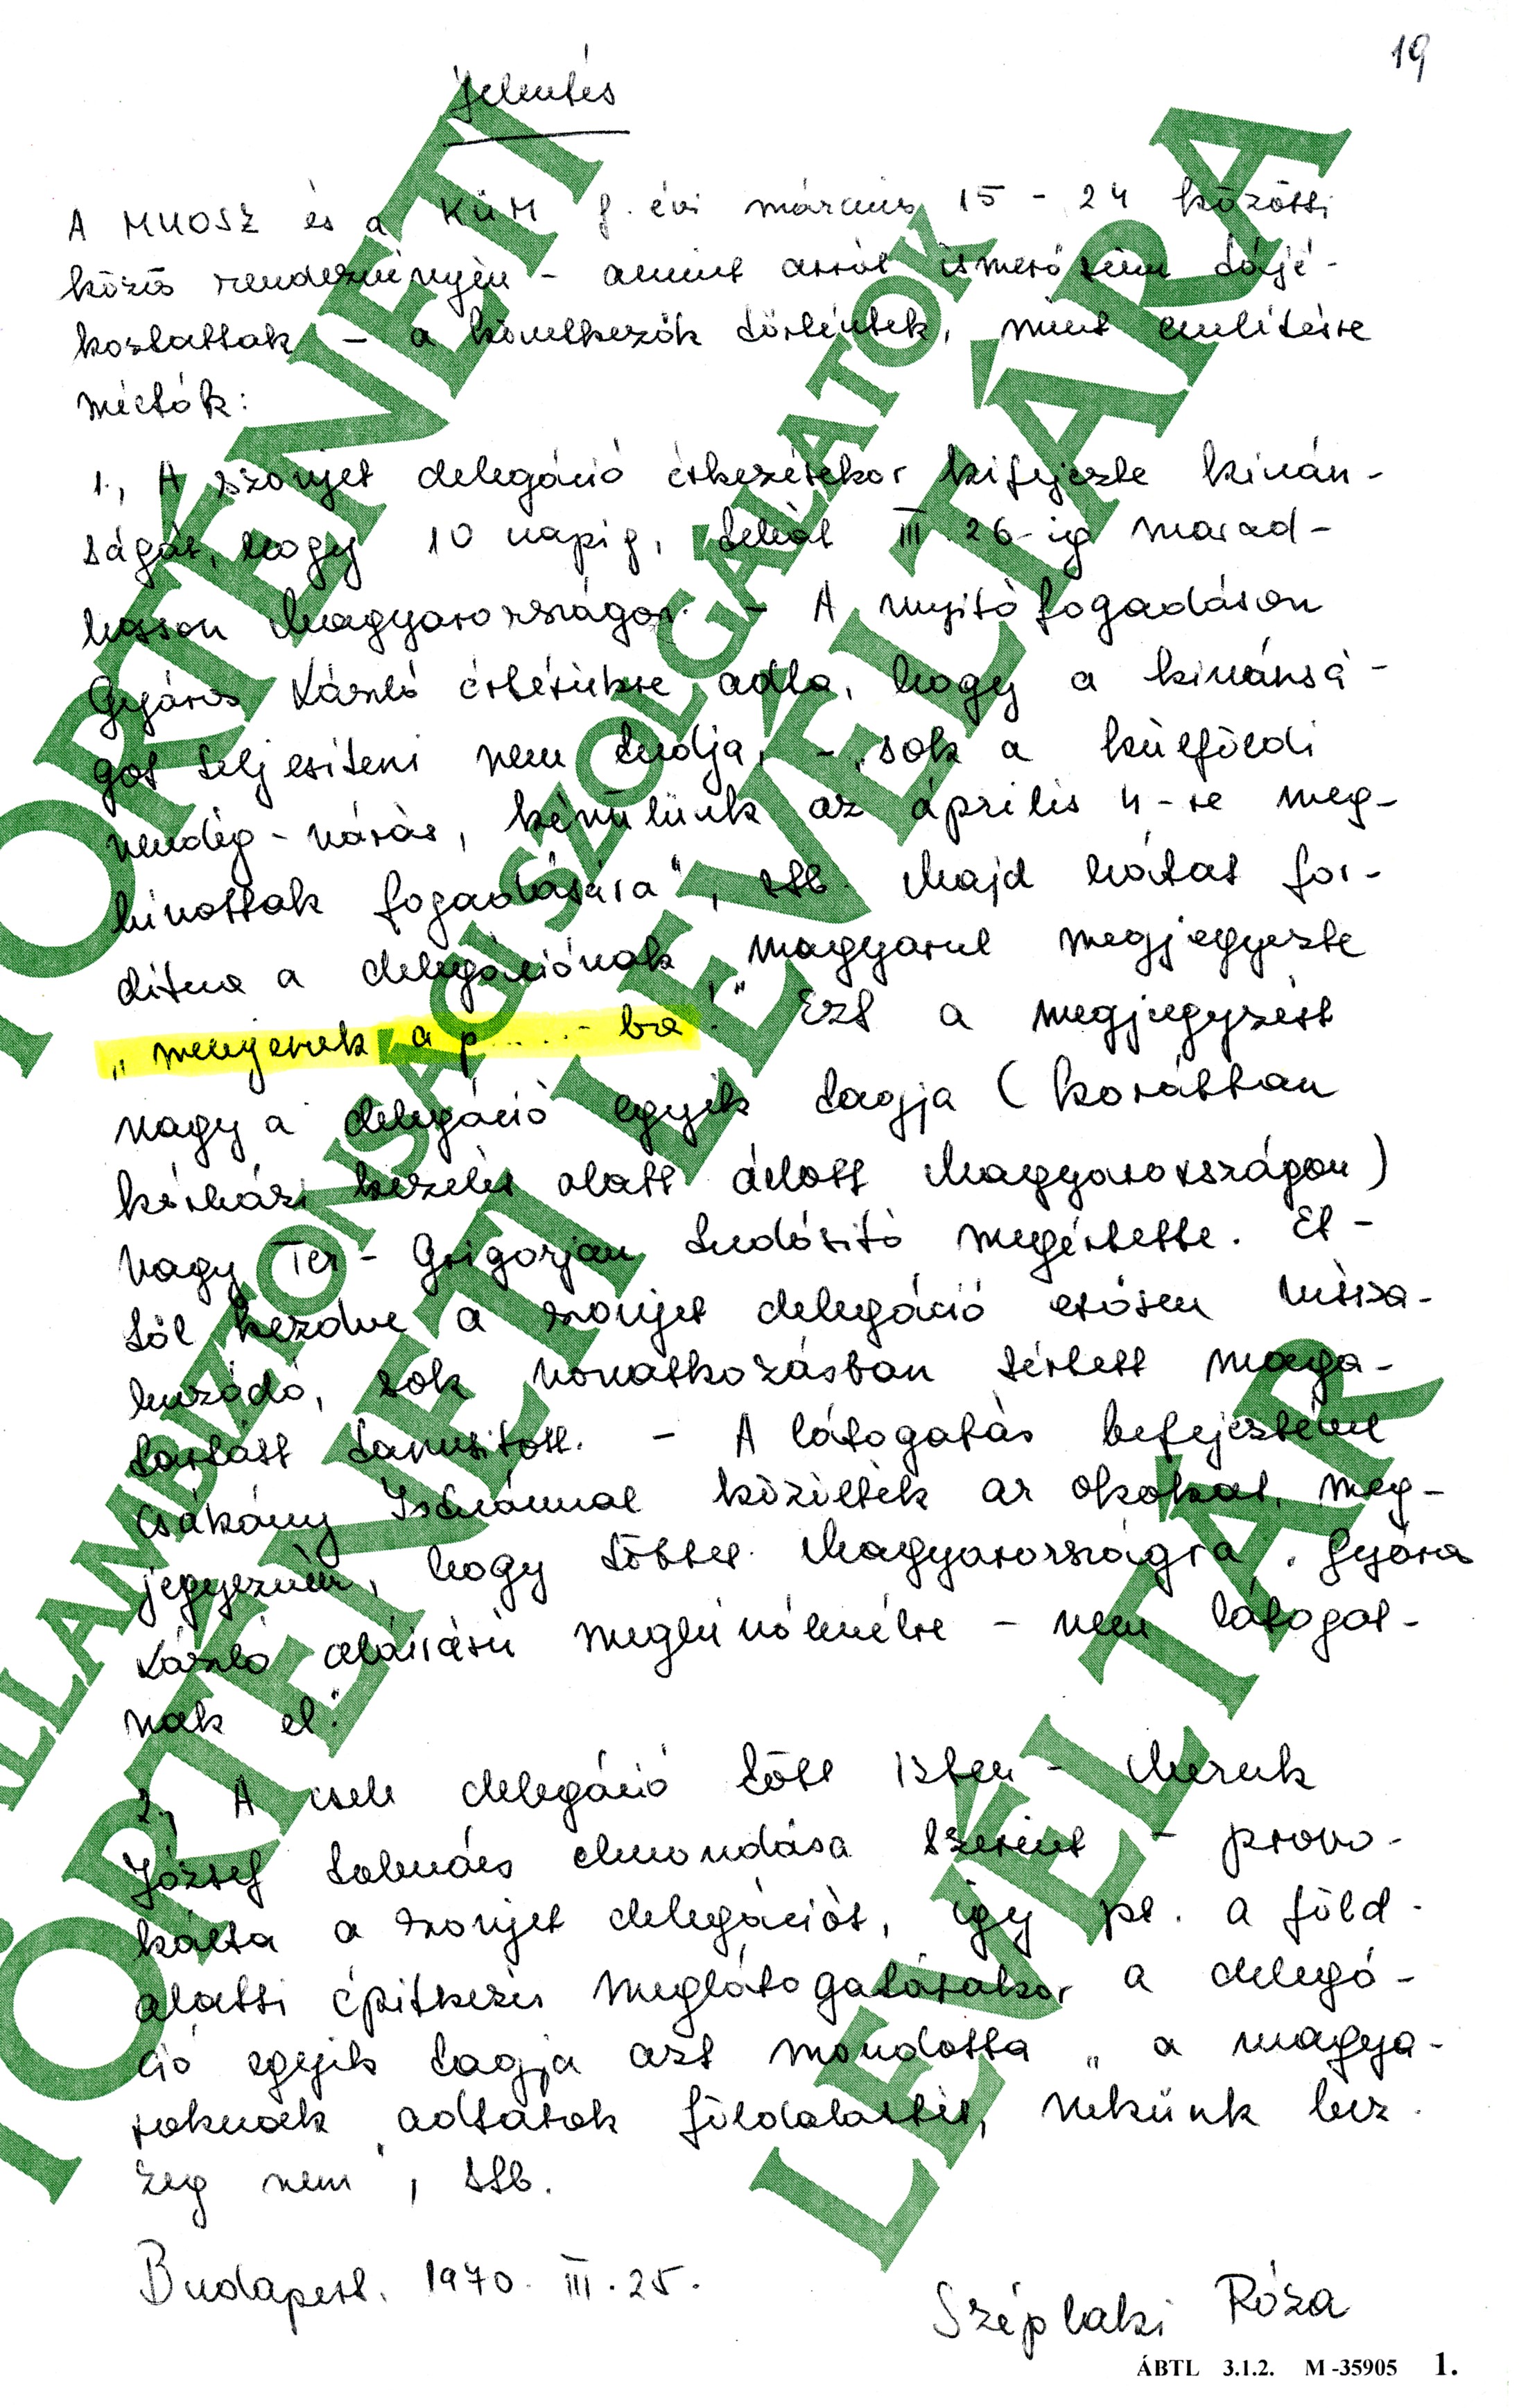 19
Jelentés
A MUOSZ és a KÜM f. évi március 15 - 24 közötti
közös rendezvényén - amint arról ismerőseim tájé-
koztattak - a következők történtek, mint említésre
méltók:
1., A szovjet delegáció érkezésekor kifejezte kíván-
ságát, hogy 10 napig, tehát III. 26-ig marad-
hasson Magyarországon. - A nyitófogadáson
Gyáros László értésükre adta, hogy a kívánsá-
got teljesíteni nem tudja, - "sok a külföldi
vendég-várás, készülünk az április 4-re meg-
hívottak fogadására", stb. Majd hátat for-
dítva a delegációnak magyarul megjegyezte
"menjenek a p.....-ba!" Ezt a megjegyzést
vagy a delegáció egyik tagja (korábban
kórházi kezelés alatt állott Magyarországon)
vagy Ter-Grigorjan tudósító megértette. Et-
től kezdve a szovjet delegáció erősen vissza-
huzódó, sok vonatkozásban sértett maga-
tartást tanusított. - A látogatás befejeztével
Csákány Istvánnal közölték az okokat, meg-
jegyezvén, hogy többet Magyarországra - Gyáros
László aláírású meghívólevélre - nem látogat-
nak el."
2., A cseh delegáció több ízben - Meruk
József tolmács elmondása szerint - provo-
kálta a szovjet delegációt, így pl. a föld-
alatti építkezés meglátogatásakor a delegá-
ció egyik tagja azt mondotta "a magya-
roknak adtatok földalattit, nekünk bez-
zeg nem", stb.
Budapest. 1970. III. 25.
Széplaki Róza
ÁBTL 3.1.2. M-35905 1.
ÁLLAMBIZTONSÁGI SZOLGÁLATOK
TÖRTÉNETI LEVÉLTÁRA
TÖRTÉNETI
LEVÉLTÁR